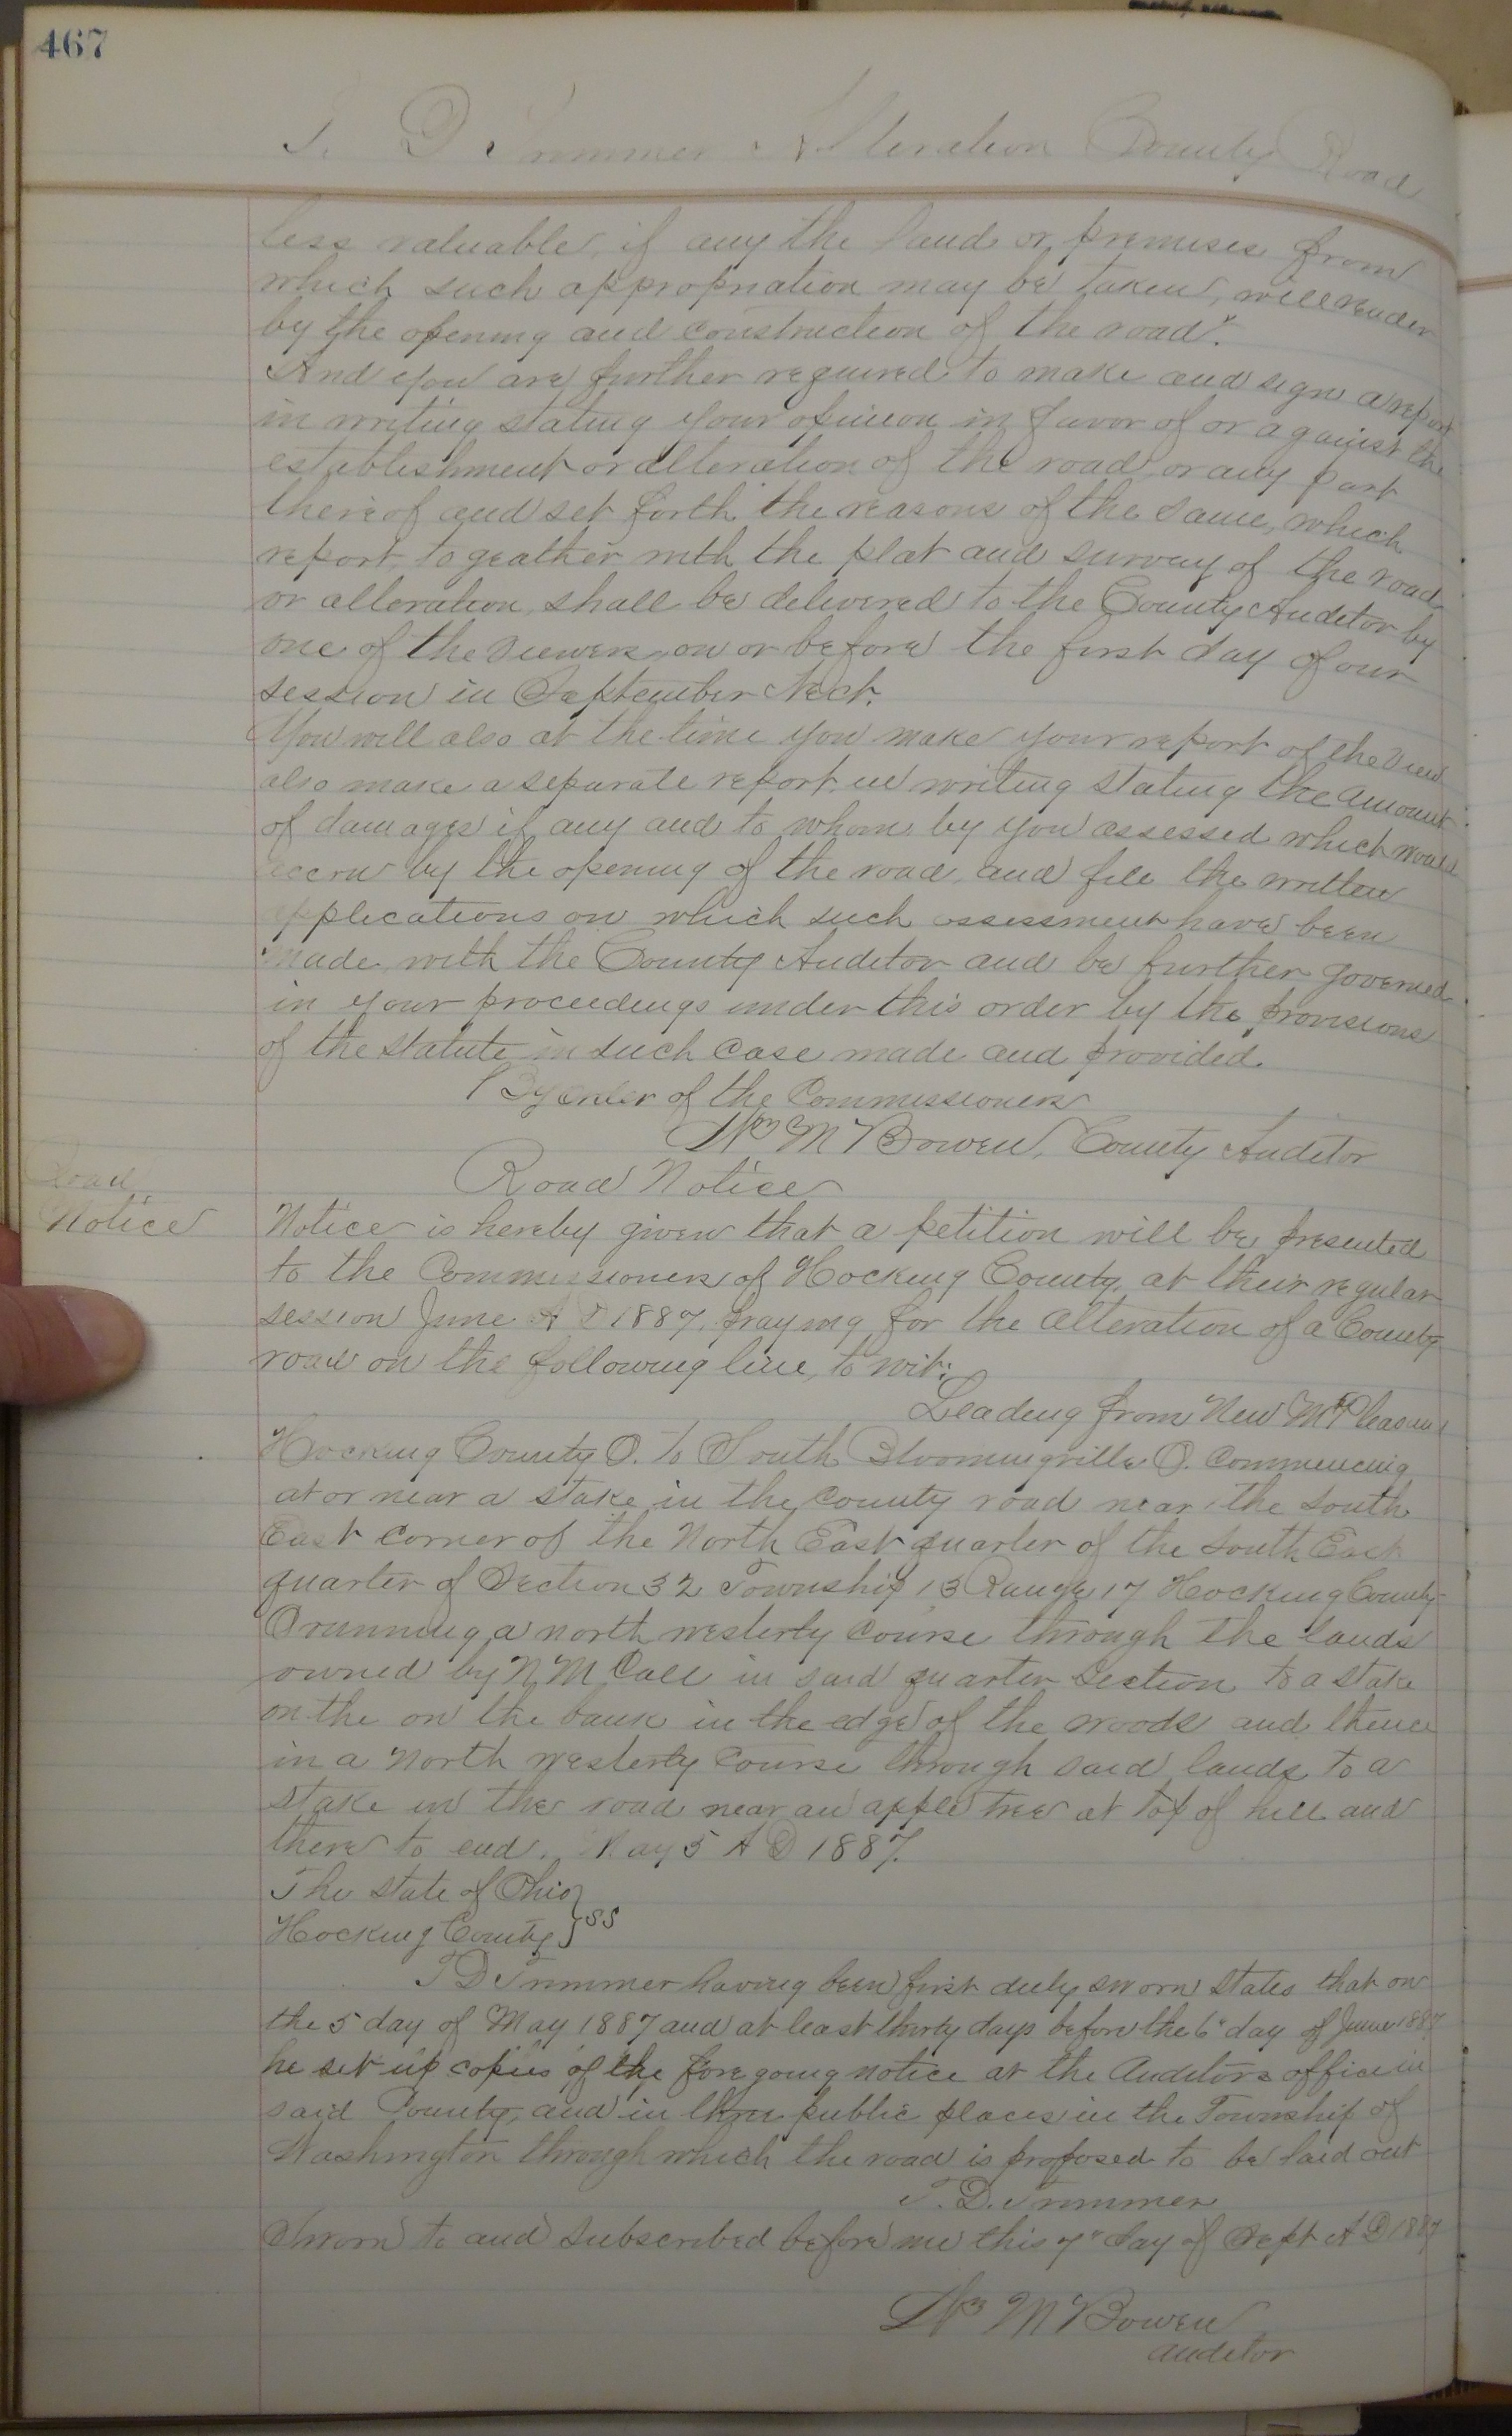 467
T. D. Trimmer Alteration County Road
less valuable, if any the land or premises from
which such appropriation may be taken, will render
by the opening and construction of the road.
And you are further required to make and sign a report
in writing stating your opinion in favor of or against the
establishment or alteration of the road or any part
thereof and set forth the reasons of the same, which
report, to geather with the plat and survey of the road
or alteration, shall be delivered to the County Auditor by
one of the viewers, on or before the first day of our
session in September Next.
You will also at the time you make your report of the view
also make a separate report in writing stating the amount
of damages if any and to whom by you assessed which would
accrue by the opening of the road, and file the written
applications on which such assessment have been
made with the County Auditor and be further governed
in your proceedings under this order by the provisions
of the statute in such case made and provided.
By order of the Commissioners
Wm M Bowen, County Auditor
Road Notice
Road
Notice
Notice is hereby given that a petition will be presented
to the Commissioners of Hocking County, at their regular
session June A D 1887, praying for the alteration of a County
road on the following line, to wit:
Leading from New Mt Pleasant
Hocking County O. to South Bloomingville O. Commencing
at or near a stake in the County road near the South
East corner of the North East quarter of the South East
quarter of Section 32 Township 13 Range 17 Hocking County
O running a north westerly course through the lands
owned by N M Call in said quarter Section to a stake
on the on the bank in the edge of the woods and thence
in a North westerly course through said lands to a
stake in the road near an apple tree at top of hill and
there to end. May 5 A D 1887.
The State of Ohio }
Hocking County } SS
T D Trimmer having been first duly sworn states that on
the 5 day of May 1887 and at least thirty days before the 6" day of June 1887
he set up copies of the foregoing notice at the Auditors office in
said County, and in three public places in the Township of
Washington through which the road is proposed to be laid out
T. D. Trimmer
Sworn to and subscribed before me this 7" day of Sept A D 1887
Wm M Bowen
Auditor